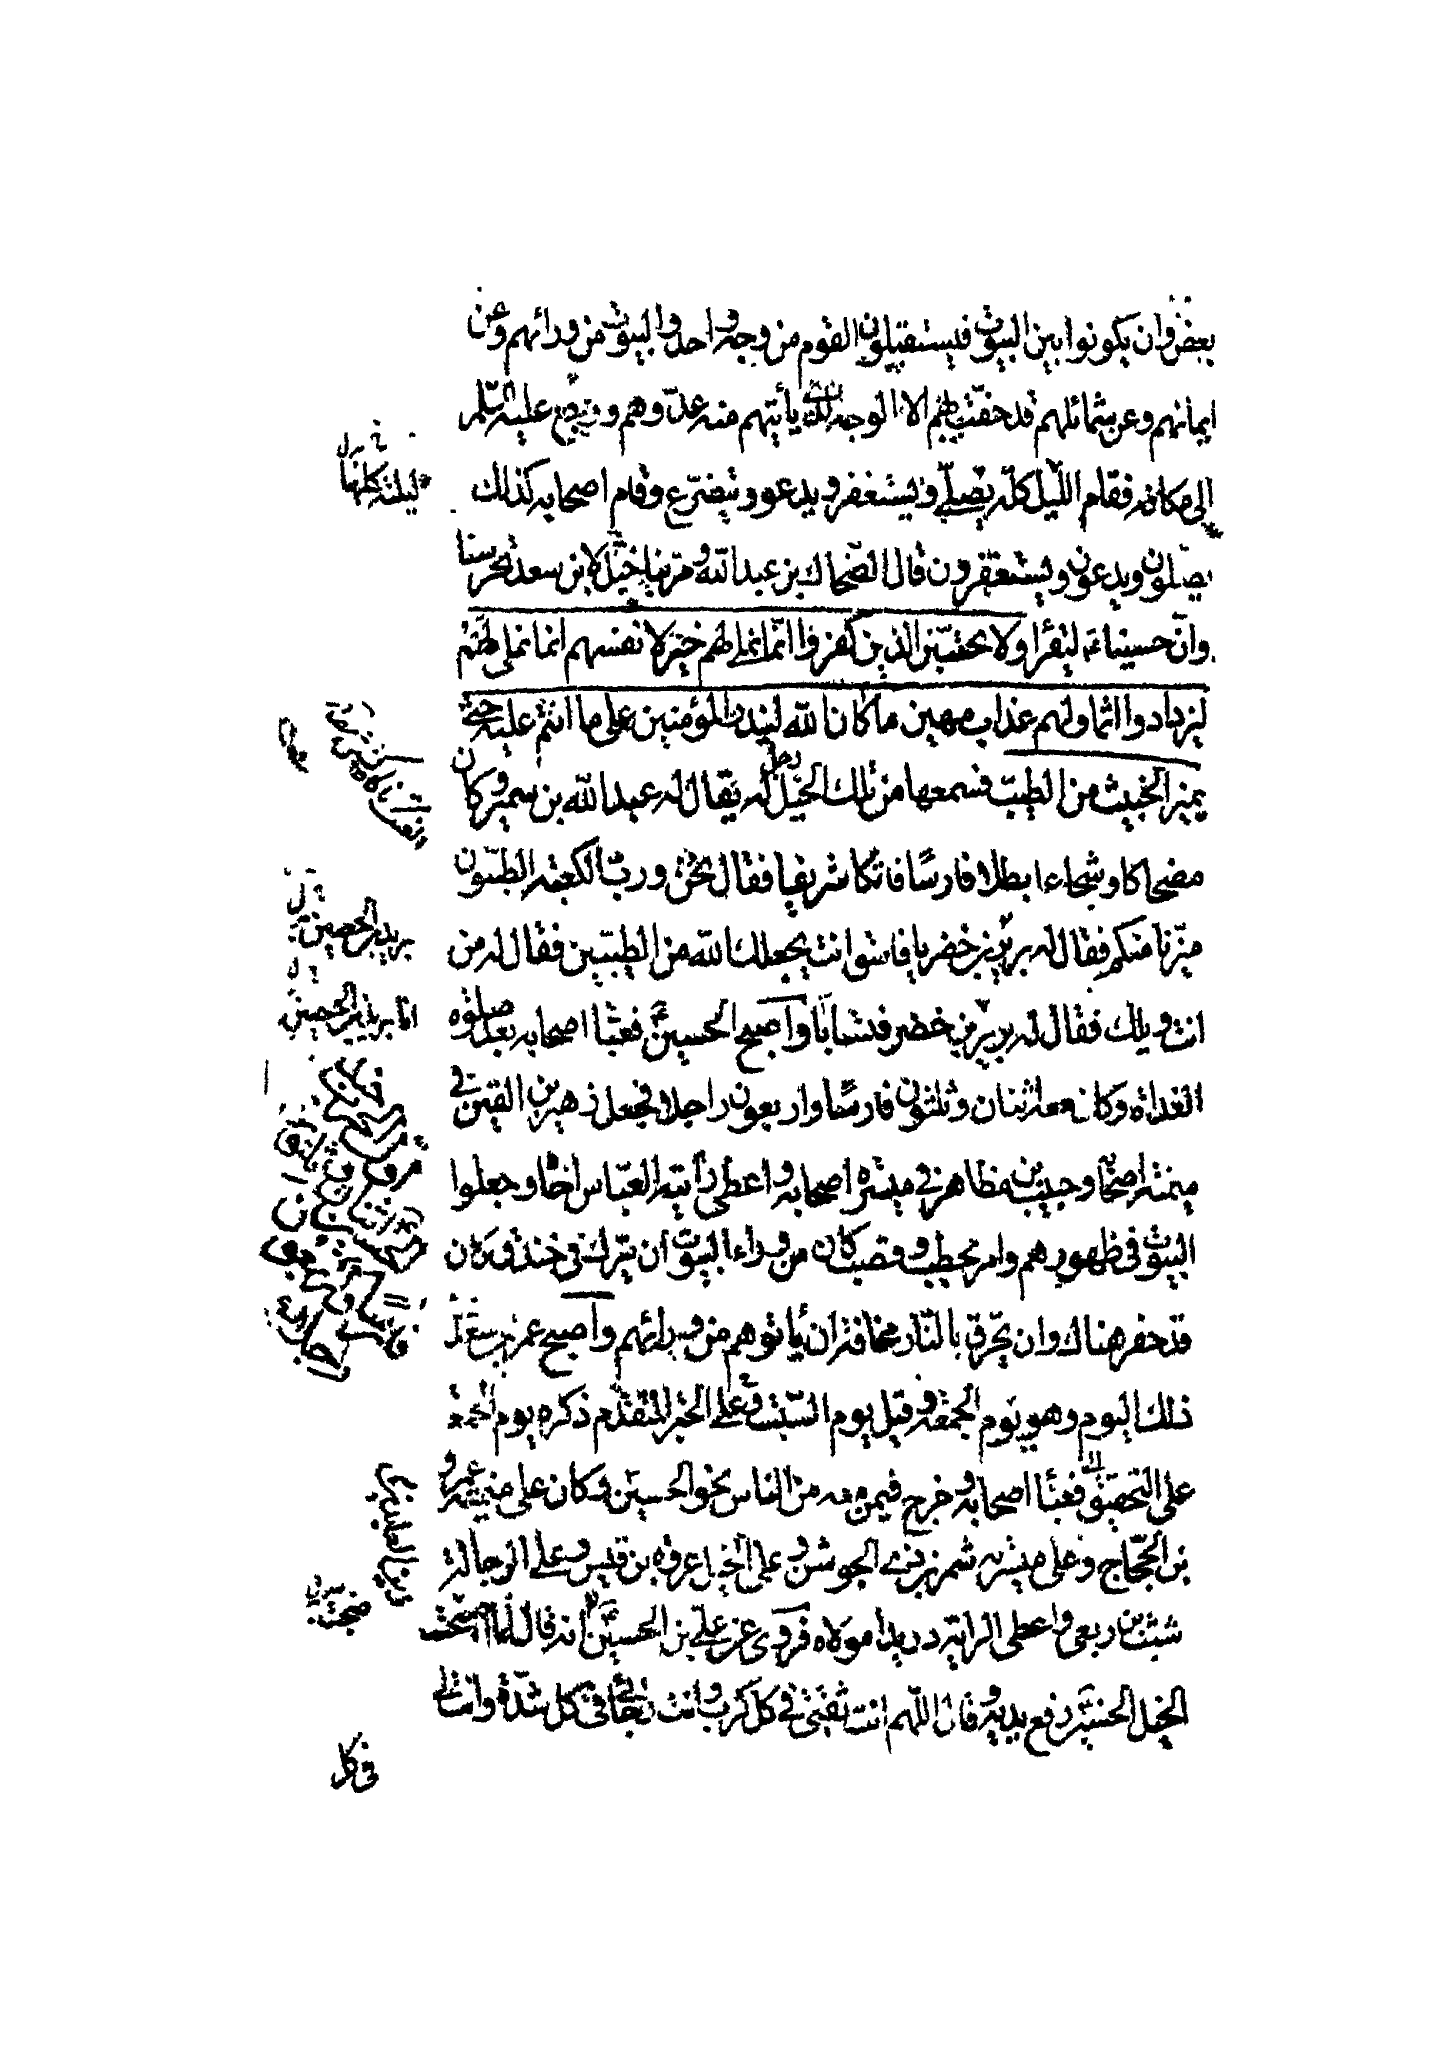 بعض وان يكونوا بين البيوت فيستقبلون القوم من وجه واحد والبيوت من ورائهم وعن
ايمانهم وعن شمائلهم قد حفت بهم الا الوجه الذي يأتيهم منه عدوهم ورجع عليه السلم
الى مكانه فقام الليل كله يصلي ويستغفر ويدعو ويتضرع وقام اصحابه كذلك
يصلون ويدعون ويستغفرون قال الضحاك بن عبد الله ومر بنا خيل لابن سعد تحرسنا
وان حسينا ع ليقرأ ولا يحسبن الذين كفروا انما نملي لهم خير لانفسهم انما نملى لهم
ليزدادوا اثما ولهم عذاب مهين ما كان الله ليذر المؤمنين على ما انتم عليه حتى
يميز الخبيث من الطيب فسمعها من تلك الخيل رجل يقال له عبد الله بن سمير وكان
مضحاكا وشجاعا بطلا فارسا فاتكا شريفا فقال نحن ورب الكعبة الطيبون
ميزنا منكم فقال له برير بن خضير يا فاسق انت يجعلك الله من الطيبين فقال له من
انت ويلك فقال له برير بن خضير فتسابا واصبح الحسين ع فعبأ اصحابه بعد صلوة
الغداة وكان معه اثنان وثلثون فارسا واربعون راجلا فجعل زهير بن القين في
ميمنة اصحابه وحبيب بن مظاهر في ميسرة اصحابه واعطى رايته العباس اخاه وجعلوا
البيوت في ظهورهم وامر بحطب وقصب كان من وراء البيوت ان يترك في خندق كان
قد حفر هناك وان تحرق بالنار مخافة ان يأتوهم من ورائهم واصبح عمر بن سعد
ذلك اليوم وهو يوم الجمعة وقيل يوم السبت وعلى الخبر المتقدم ذكره يوم الجمعة
على التحقيق فعبأ اصحابه وخرج فيمن معه من الناس نحو الحسين وكان على ميمنته عمرو
بن الحجاج وعلى ميسرته شمر بن ذي الجوشن وعلى الخيل عروة بن قيس وعلى الرجالة
شبث بن ربعي واعطى الراية دريدا مولاه فروي عن علي بن الحسين ع انه قال لما اصبحت
الخيل الحسين رفع يديه وقال اللهم انت ثقتي في كل كرب وانت رجائي في كل شدة وانت لي
ليلته كلها
برير بن الحصين
انا برير بن الحصين
صبحت
في كل